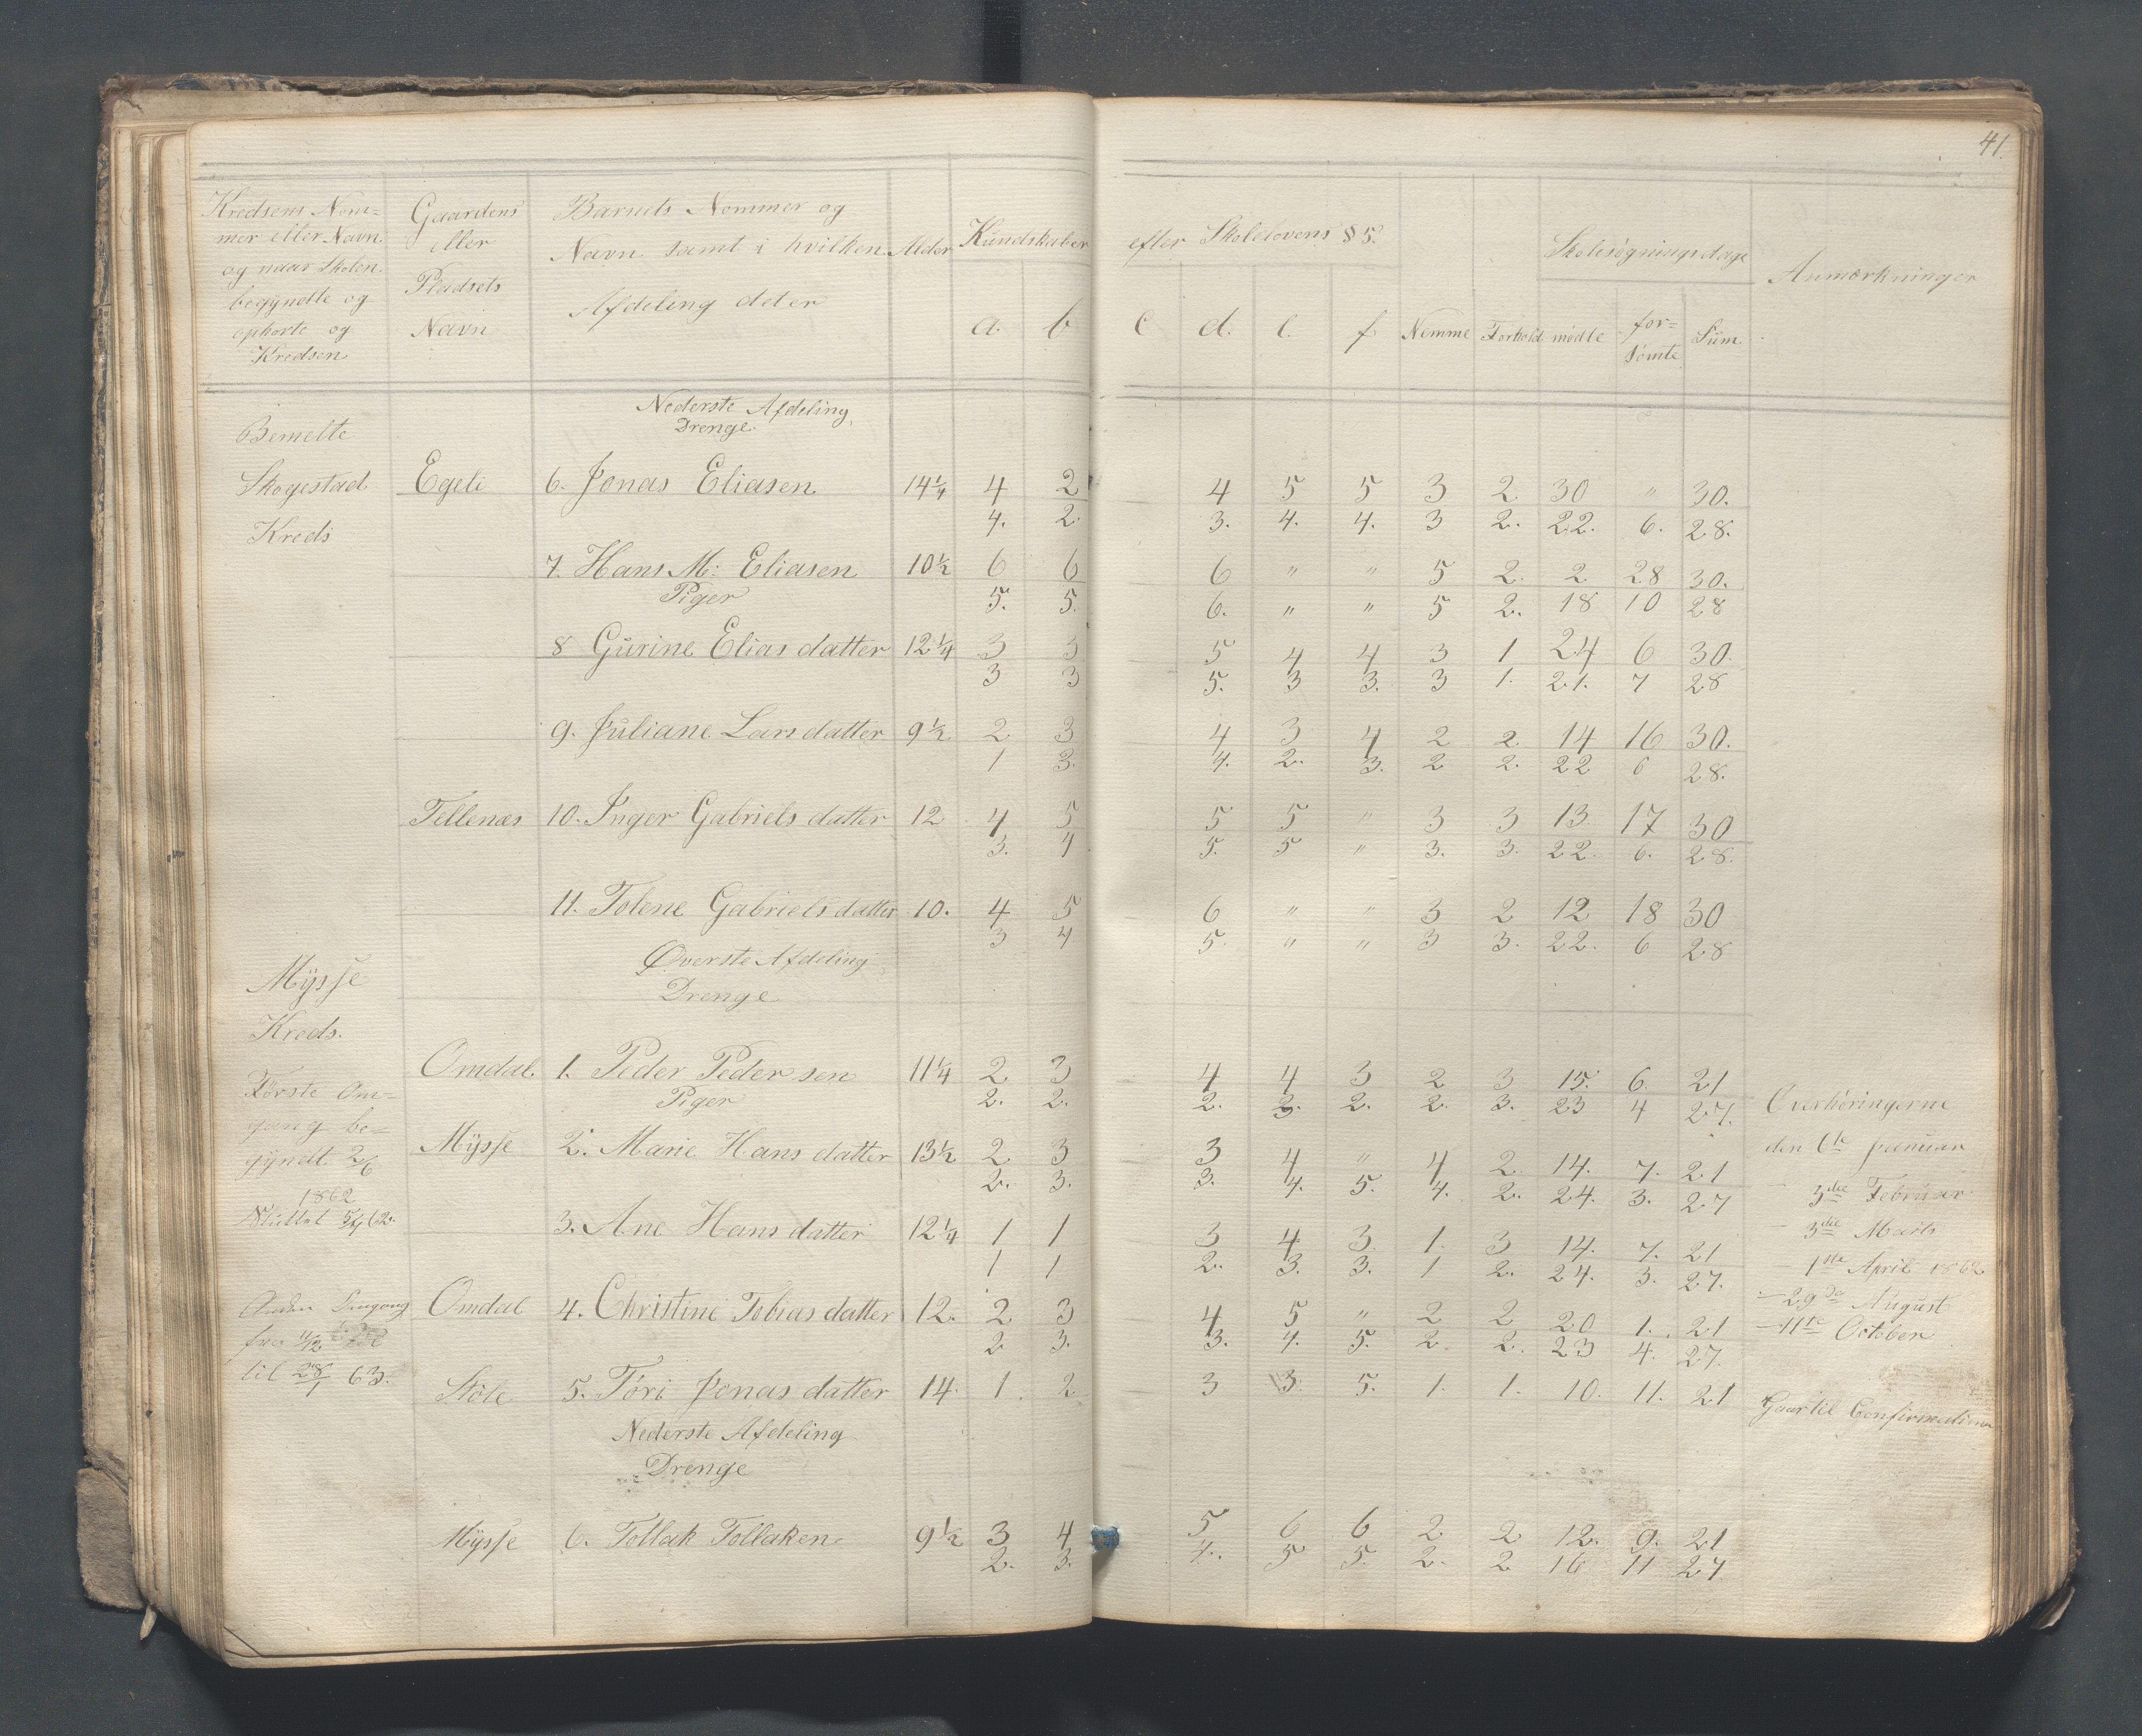 41
Kredsens Nom=
mer eller Navn
og naar Skolen
begyndte og
ophørte og
Kredsen
Gaardens
eller
Pladsets
Navn
Barnets Nommer og
Navn samt i hvilken
Afdeling det er
Alder
Kundskaber efter Skolelovens § 5.
a. b c d. e. f Nemme Forhold
Skolesøgningsdage
mødte for= Sum
sømte
Anmærkninger
Nederste Afdeling
Drenge.
Bemelte
Skogestad Egeli 6. Jonas Eliasen 14 1/4 4 2 4 5 5 3 2 30 " 30.
4. 2. 3. 4. 4. 3 2. 22. 6. 28.
Kreds
7. Hans M: Eliasen 10 1/2 6 6 6 " " 5 2. 2 28 30.
Piger 5. 5. 6. " " 5 2. 18 10 28
8 Gurine Elias datter 12 1/4 3 3 5 4 4 3 1 24 6 30.
3 3 5. 3 3. 3 1. 21. 7 28
9. Juliane Lars datter 9 1/2 2 3 4 3 4 2 2 14 16 30.
1 3. 4. 2. 3. 2 2. 22 6 28.
Tellenæs 10. Inger Gabriels datter 12 4 5 5 5 " 3 3 13 17 30
3. 4 5. 5 " 3. 3. 22. 6. 28.
11. Tolene Gabriels datter 10. 4 5 6 " " 3 2 12 18 30
3 4 5. " " 3 3. 22. 6 28
Øverste Afdeling
Drenge
Mysse
Kreds.
Omdal 1. Peder Pedersen 11 1/4 2 3 4 4 3 2 3 15. 6. 21
Piger 2. 2. 2. 3. 2. 2. 3. 23 4 27.
Første Om=
gang be=
gyndt 2/6
1862
Sluttet 5/7 62.
Mysse 2. Marie Hans datter 13 1/2 2 3 3 4 " 4 2 14. 7. 21
2. 3. 3. 4. 5. 4. 2. 24. 3. 27
3. Ane Hans datter 12 1/4 1 1 3 4 3. 1. 3 14. 7. 21
1 1 2. 3. 3. 1 2. 24. 3. 27.
Anden Omgang
fra 11/12
til 28/1 63.
Omdal 4. Christine Tobias datter 12. 2 3 4 5 " 2 2 20 1. 21
2 3. 3. 4. 5. 2. 2. 23 4. 27.
Støle 5. Tøri Jonas datter 14. 1. 2 3 3. 5. 1. 1. 10. 11. 21 Gaar til Confirmationen
Overhøringerne
den 6te Januar
3die Februar
3die Marts
1ste April 1862
29de August
11te October
Nederste Afdeling
Drenge
Mysse 6. Tollak Tollaksen 9 1/2 3 4 5 6 6 2 2 12. 9. 21
2. 3. 4. 5 5. 2. 2 16 11 27